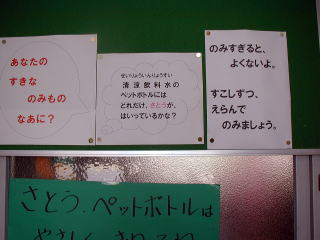 あなたの
すきな
のみもの
なあに？
せいりょういんりょうすい
清涼飲料水の
ペットボトルには
どれだけ、さとうが、
はいっているかな？
のみすぎると、
よくないよ。
すこしずつ、
えらんで
のみましょう。
さとう、ペットボトルは